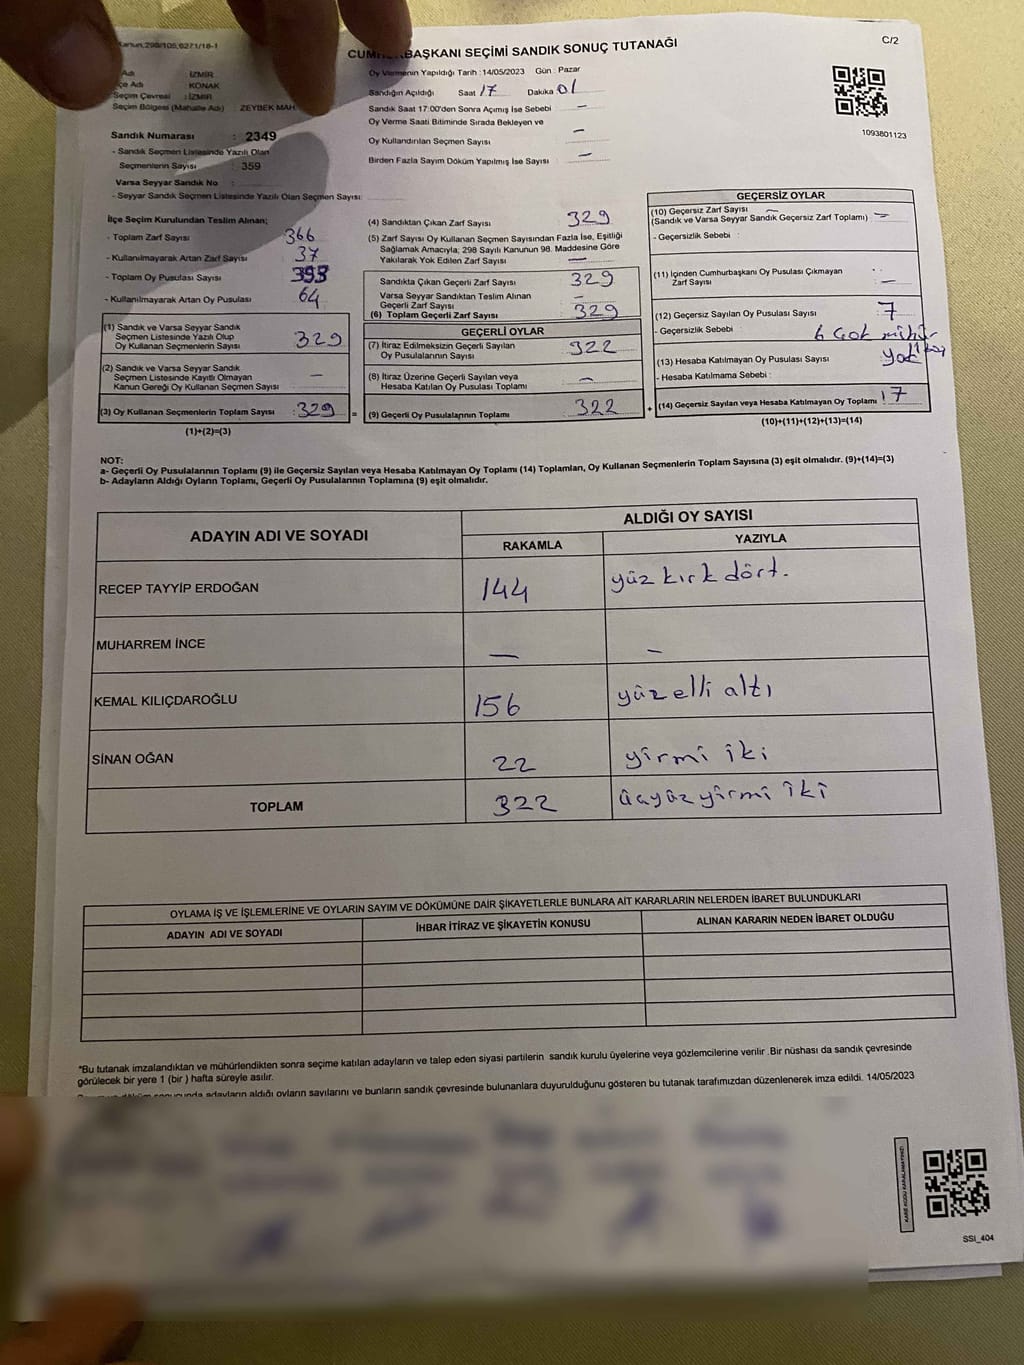 Kanun,298/105;6271/18-1
C/2
CUMHURBAŞKANI SEÇİMİ SANDIK SONUÇ TUTANAĞI
Adı İZMİR
İlçe Adı KONAK
Seçim Çevresi : İZMİR
Seçim Bölgesi (Mahalle Adı) : ZEYBEK MAH.
Oy Vermenin Yapıldığı Tarih :14/05/2023 Gün : Pazar
Sandığın Açıldığı Saat 17 Dakika 01
Sandık Saat 17:00'den Sonra Açımış İse Sebebi —
Oy Verme Saati Bitiminde Sırada Bekleyen ve
Oy Kullandırılan Seçmen Sayısı —
Birden Fazla Sayım Döküm Yapılmış İse Sayısı —
1093801123
Sandık Numarası : 2349
- Sandık Seçmen Listesinde Yazılı Olan
Seçmenlerin Sayısı : 359
Varsa Seyyar Sandık No :
- Seyyar Sandık Seçmen Listesinde Yazılı Olan Seçmen Sayısı:
İlçe Seçim Kurulundan Teslim Alınan;
- Toplam Zarf Sayısı 366
- Kullanılmayarak Artan Zarf Sayısı 37
- Toplam Oy Pusulası Sayısı
- Kullanılmayarak Artan Oy Pusulası 64
(1) Sandık ve Varsa Seyyar Sandık
Seçmen Listesinde Yazılı Olup
Oy Kullanan Seçmenlerin Sayısı : 329
(2) Sandık ve Varsa Seyyar Sandık
Seçmen Listesinde Kayıtlı Olmayan
Kanun Gereği Oy Kullanan Seçmen Sayısı : —
(3) Oy Kullanan Seçmenlerin Toplam Sayısı : 329 =
(1)+(2)=(3)
(4) Sandıktan Çıkan Zarf Sayısı 329
(5) Zarf Sayısı Oy Kullanan Seçmen Sayısından Fazla İse, Eşitliği
Sağlamak Amacıyla; 298 Sayılı Kanunun 98. Maddesine Göre
Yakılarak Yok Edilen Zarf Sayısı —
Sandıkta Çıkan Geçerli Zarf Sayısı : 329
Varsa Seyyar Sandıktan Teslim Alınan
Geçerli Zarf Sayısı : —
(6) Toplam Geçerli Zarf Sayısı : 329
GEÇERLİ OYLAR
(7) İtiraz Edilmeksizin Geçerli Sayılan
Oy Pusulalarının Sayısı : 322
(8) İtiraz Üzerine Geçerli Sayılan veya
Hesaba Katılan Oy Pusulası Toplamı : —
(9) Geçerli Oy Pusulalarının Toplamı : 322 +
GEÇERSİZ OYLAR
(10) Geçersiz Zarf Sayısı —
(Sandık ve Varsa Seyyar Sandık Geçersiz Zarf Toplamı) : —
- Geçersizlik Sebebi :
(11) İçinden Cumhurbaşkanı Oy Pusulası Çıkmayan
Zarf Sayısı : —
(12) Geçersiz Sayılan Oy Pusulası Sayısı : 7
- Geçersizlik Sebebi : 6 çok mühür
(13) Hesaba Katılmayan Oy Pusulası Sayısı : yok
- Hesaba Katılmama Sebebi :
(14) Geçersiz Sayılan veya Hesaba Katılmayan Oy Toplamı : 7
(10)+(11)+(12)+(13)=(14)
NOT:
a- Geçerli Oy Pusulalarının Toplamı (9) ile Geçersiz Sayılan veya Hesaba Katılmayan Oy Toplamı (14) Toplamları, Oy Kullanan Seçmenlerin Toplam Sayısına (3) eşit olmalıdır. (9)+(14)=(3)
b- Adayların Aldığı Oyların Toplamı, Geçerli Oy Pusulalarının Toplamına (9) eşit olmalıdır.
ADAYIN ADI VE SOYADI
ALDIĞI OY SAYISI
RAKAMLA YAZIYLA
RECEP TAYYİP ERDOĞAN 144 yüz kırk dört.
MUHARREM İNCE — —
KEMAL KILIÇDAROĞLU 156 yüz elli altı
SİNAN OĞAN 22 yirmi iki
TOPLAM 322 üçyüz yirmi iki
OYLAMA İŞ VE İŞLEMLERİNE VE OYLARIN SAYIM VE DÖKÜMÜNE DAİR ŞİKAYETLERLE BUNLARA AİT KARARLARIN NELERDEN İBARET BULUNDUKLARI
ADAYIN ADI VE SOYADI İHBAR İTİRAZ VE ŞİKAYETİN KONUSU ALINAN KARARIN NEDEN İBARET OLDUĞU
*Bu tutanak imzalandıktan ve mühürlendikten sonra seçime katılan adayların ve talep eden siyasi partilerin sandık kurulu üyelerine veya gözlemcilerine verilir .Bir nüshası da sandık çevresinde
görülecek bir yere 1 (bir ) hafta süreyle asılır.
adayların aldığı oyların sayılarını ve bunların sandık çevresinde bulunanlara duyurulduğunu gösteren bu tutanak tarafımızdan düzenlenerek imza edildi. 14/05/2023
KARE KODU KARALAMAYINIZ!
SSI_404